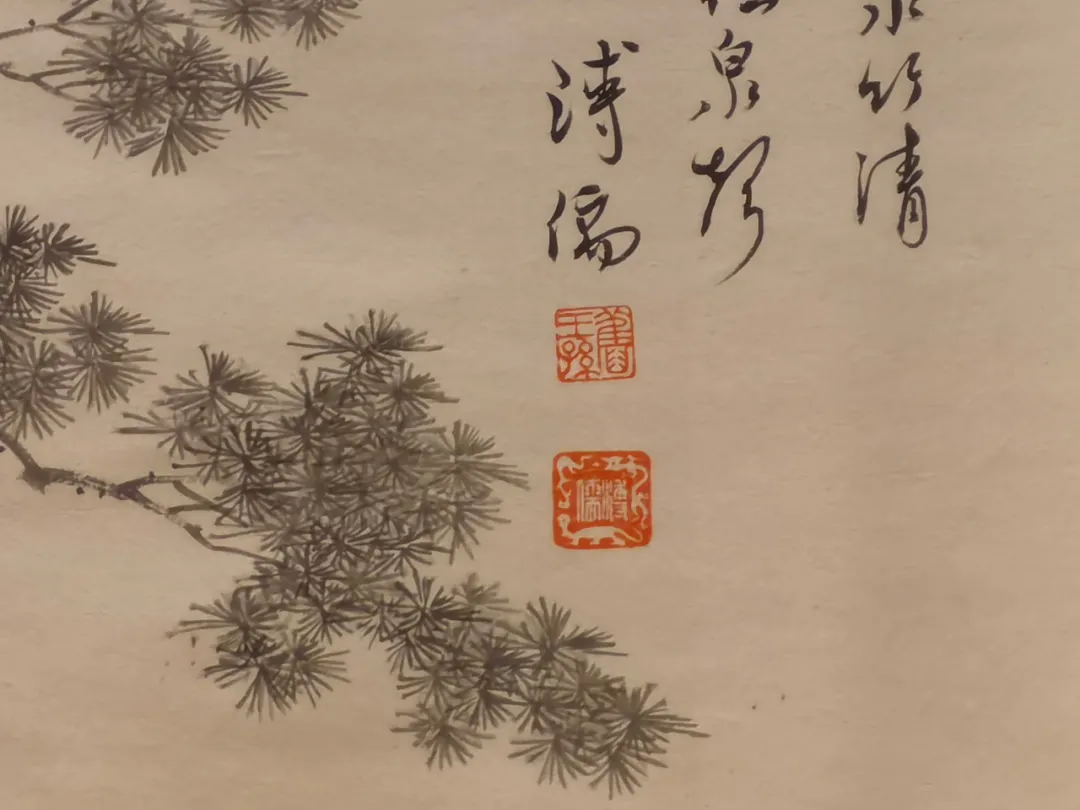 竹清
泉聲
溥儒
舊王孫
溥儒